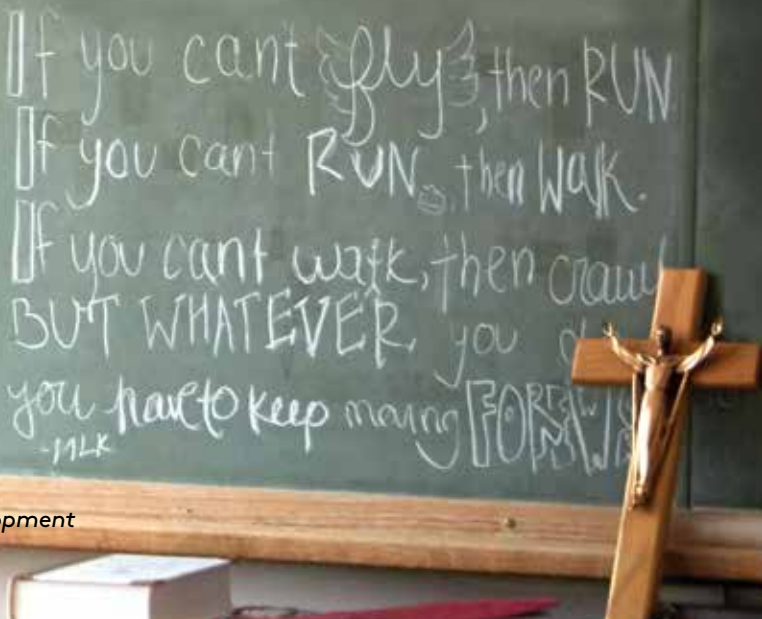 If you cant fly, then RUN
If you cant RUN, then Walk.
If you cant walk, then crawl
BUT WHATEVER you
you have to keep moving
-MLK
opment